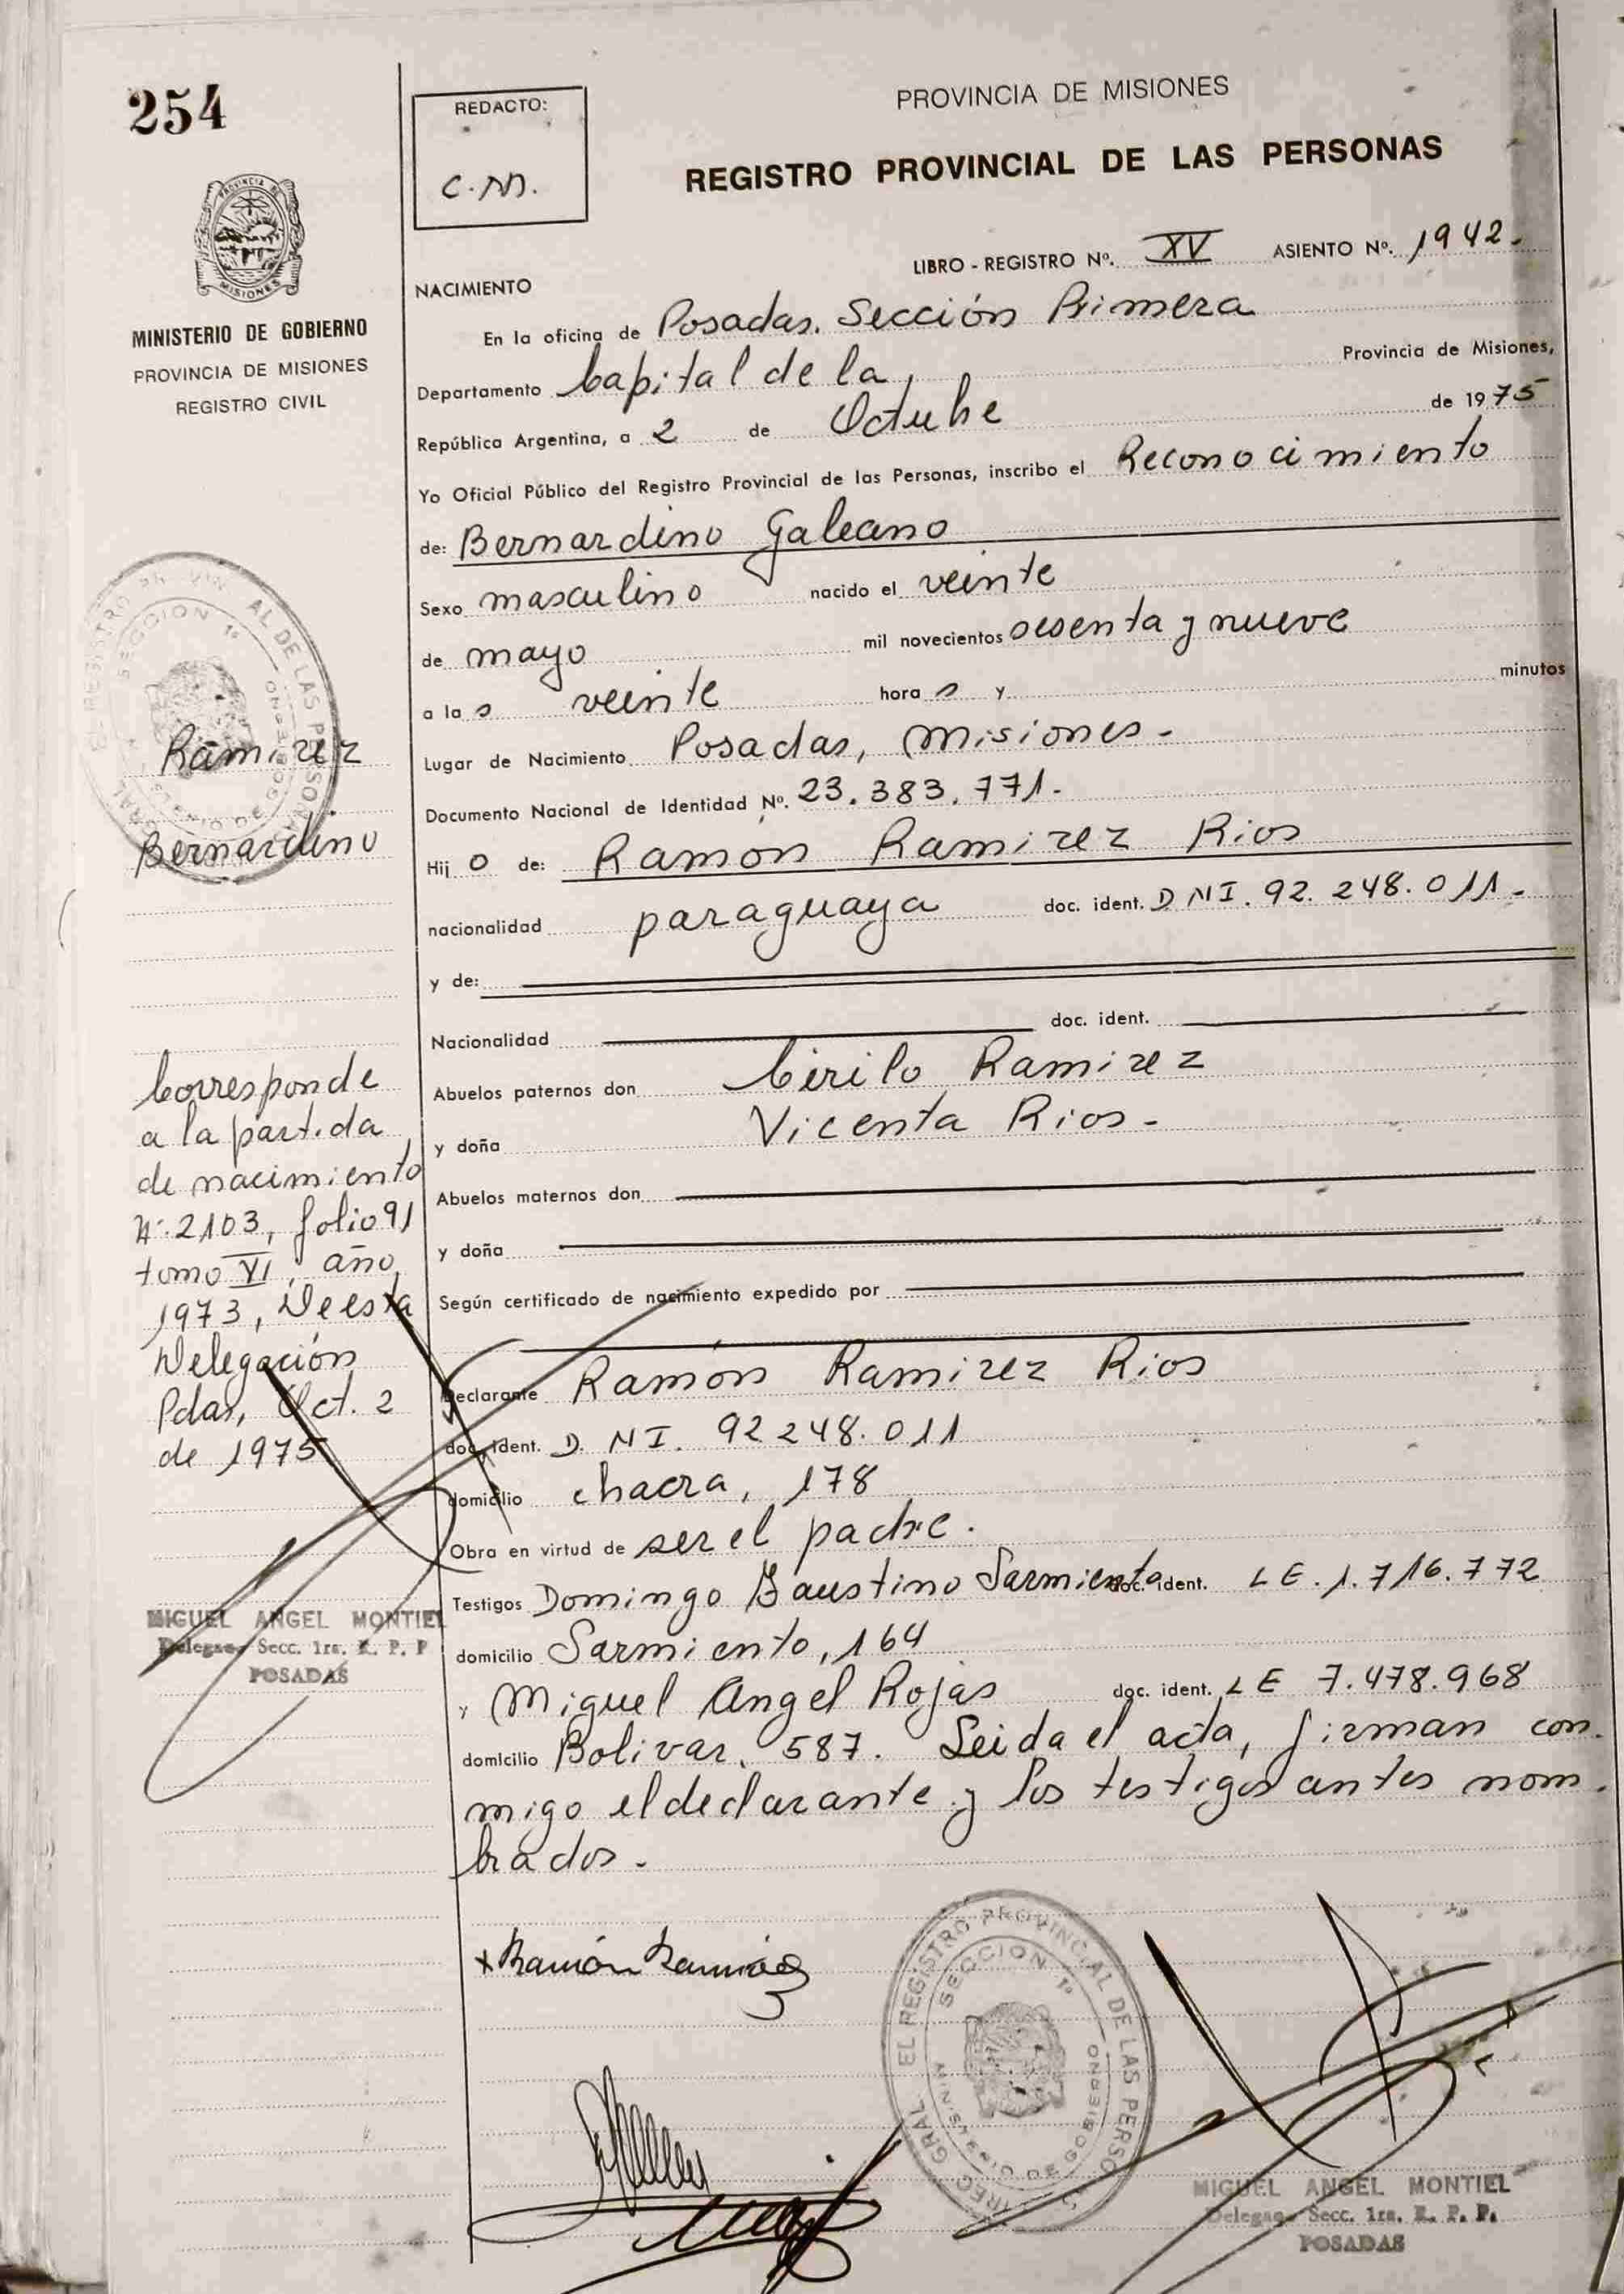 254
REDACTO:
C.M.
PROVINCIA DE MISIONES
REGISTRO PROVINCIAL DE LAS PERSONAS
PROVINCIA DE
MISIONES
MINISTERIO DE GOBIERNO
PROVINCIA DE MISIONES
REGISTRO CIVIL
LIBRO - REGISTRO Nº. XV ASIENTO Nº. 1942.
NACIMIENTO
En la oficina de Posadas. Sección Primera
Departamento Capital de la Provincia de Misiones,
República Argentina, a 2 de Octubre de 1975
Yo Oficial Público del Registro Provincial de las Personas, inscribo el Reconocimiento
de: Bernardino Galeano
Sexo masculino nacido el veinte
de mayo mil novecientos sesenta y nueve
a las veinte horas y minutos
Lugar de Nacimiento Posadas, Misiones.
Documento Nacional de Identidad Nº. 23.383.771.
Hijo de: Ramón Ramirez Rios
nacionalidad paraguaya doc. ident. DNI. 92.248.011.
y de:
Nacionalidad doc. ident.
Abuelos paternos don Cirilo Ramirez
y doña Vicenta Rios.
Abuelos maternos don
y doña
Según certificado de nacimiento expedido por
Declarante Ramón Ramirez Rios
doc. ident. D.NI. 92248.011
domicilio chacra, 178
Obra en virtud de ser el padre.
Testigos Domingo Faustino Sarmiento doc. ident. LE.1.716.772
domicilio Sarmiento, 164
y Miguel Angel Rojas doc. ident. LE 7.478.968
domicilio Bolivar, 587. Leida el acta, firman con
migo el declarante y los testigos antes nom.
brados.
Ramirez
Bernardino
Corresponde
a la partida
de nacimiento
Nº.2103, folio 91
tomo VI, año
1973, De esta
Delegación
Pdas, Oct. 2
de 1975
MIGUEL ANGEL MONTIEL
Delegado Secc. 1ra. R. P. P
POSADAS
x Ramón Ramirez
EL REGISTRO PROVINCIAL DE LAS PERSO
SECCION 1ª
MINISTERIO DE GOBIERNO
MIGUEL ANGEL MONTIEL
Delegado Secc. 1ra. R. P. P.
POSADAS